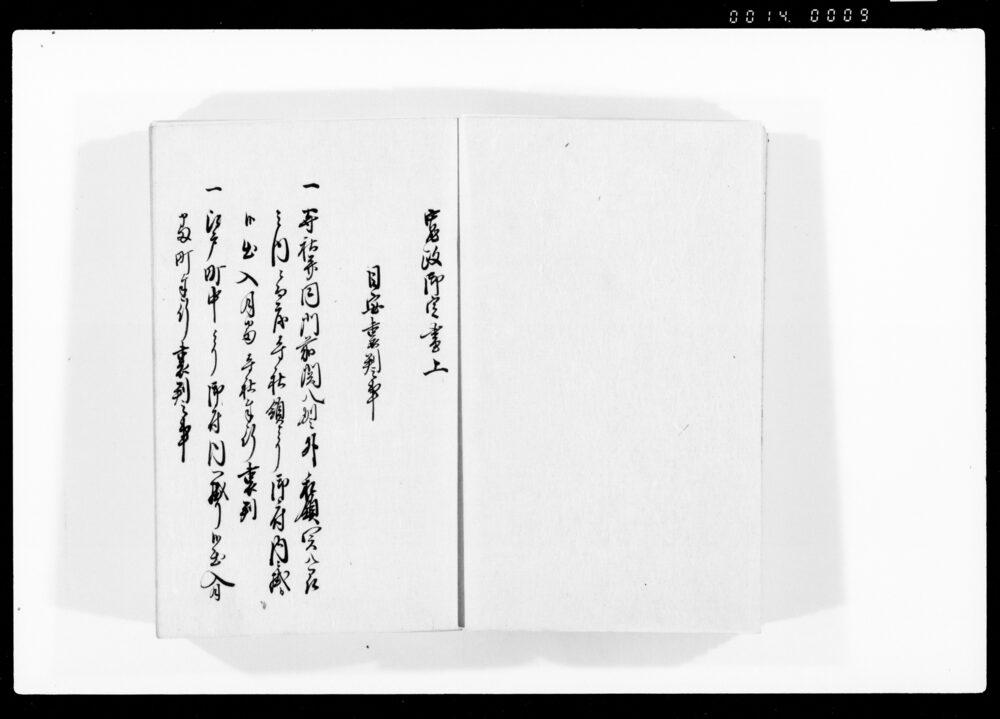 0014. 0009
寛政御定書上
目安裏判之事
一 寺社并同門前関八州外私領関八州
之内ニ而も寺社領より御府内江懸
候出入月番寺社奉行裏判
一 江戸町中より御府内江懸り候出入月
番町奉行裏判之事